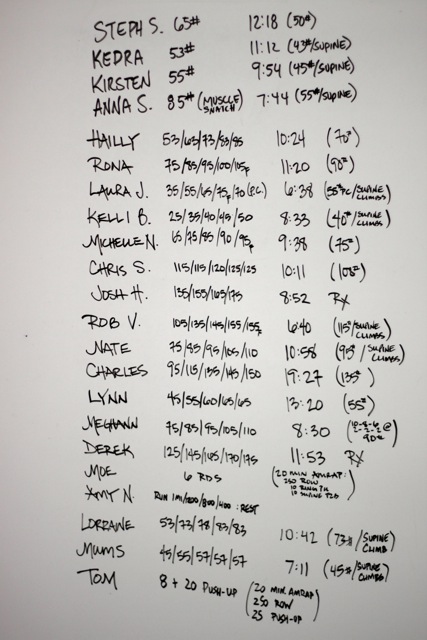 STEPH S. 65# 12:18 (50#)
KEDRA 53# 11:12 (43#/SUPINE)
KIRSTEN 55# 9:54 (45#/SUPINE)
ANNA S. 85# (MUSCLE SNATCH) 7:44 (55#/SUPINE)
HAILLY 53/63/73/83/85 10:24 (70#)
RONA 75/85/95/100/105F 11:20 (90#)
LAURA J. 35/55/65/75F/70 (P.C.) 6:38 (55#PC/SUPINE CLIMBS)
KELLI B. 25/35/40/45/50 8:33 (40#/SUPINE CLIMBS)
MICHELLE N. 65/75/85/90/95F 9:38 (75#)
CHRIS S. 115/115/120/125/125 10:11 (100#)
JOSH H. 135/155/165/175 8:52 RX
ROB V. 105/135/145/155/155F 6:40 (115#/SUPINE CLIMBS)
NATE 75/85/95/105/110 10:58 (95#/SUPINE CLIMBS)
CHARLES 95/115/135/145/150 19:27 (135#)
LYNN 45/55/60/65/65 13:20 (55#)
MEGHANN 75/85/95/105/110 8:30 @ 90#)
DEREK 125/145/165/170/175 11:53 RX
MOE 6 RDS (20 MIN AMRAP:
250 ROW
10
10 SUPINE T2B)
AMY N. RUN /800/400 :REST
LORRAINE 53/73/78/83/83 10:42 (73#/SUPINE CLIMB)
MUMS 45/55/57/57/57 7:11 (45#/SUPINE CLIMBS)
TOM 8 + 20 PUSH-UP (20 MIN. AMRAP
250 ROW
25 PUSH-UP)